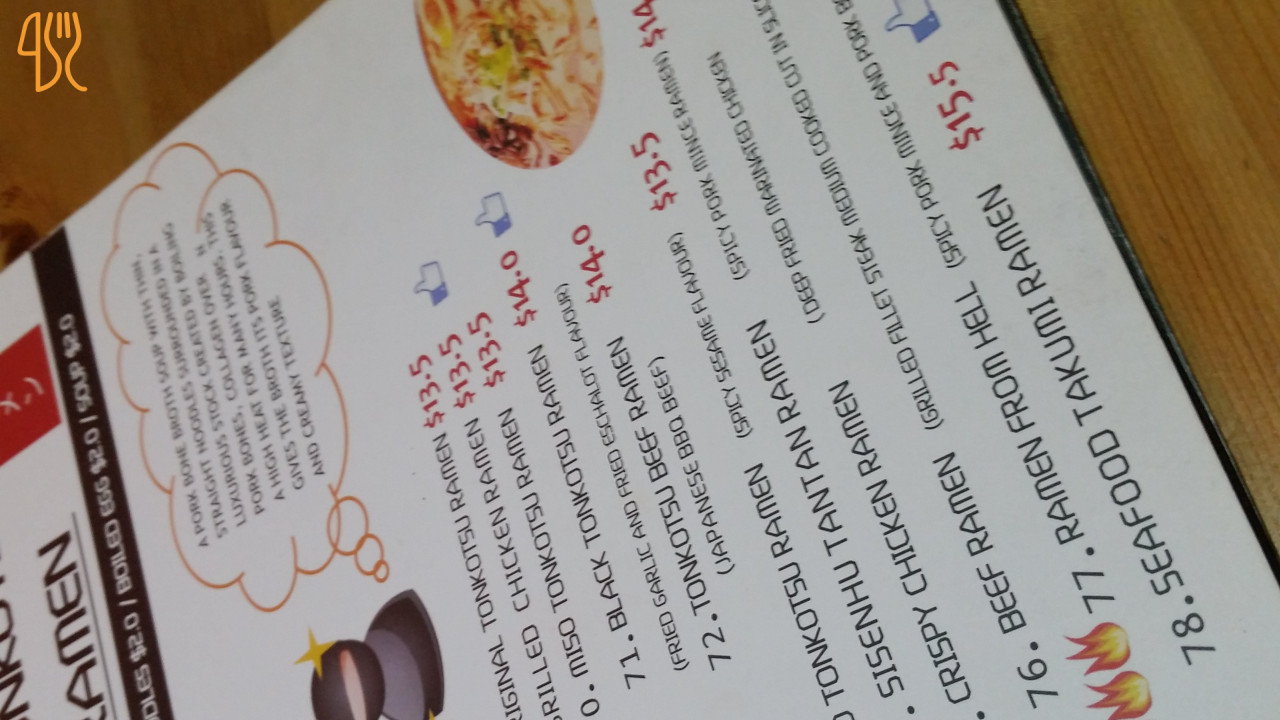 RAMEN
BOILED EGG $2.0 / SOUP $2.0
A PORK BONE BROTH SOUP WITH THIN,
STRAIGHT NOODLES SURROUNDED IN A
LUXURIOUS STOCK CREATED BY BOILING
PORK BONES, COLLAGEN OVER
A HIGH HEAT FOR MANY HOURS, THIS
GIVES THE BROTH ITS PORK FLAVOUR
AND CREAMY TEXTURE
TONKOTSU RAMEN $13.5
CHICKEN RAMEN $13.5
MISO TONKOTSU RAMEN $13.5
71. BLACK TONKOTSU RAMEN $14.0
(FRIED GARLIC AND FRIED ESCHALOT FLAVOUR)
72. TONKOTSU BEEF RAMEN $14.0
(JAPANESE BBQ BEEF)
TONKOTSU RAMEN (SPICY SESAME FLAVOUR) $13.5
SISENHU TANTAN RAMEN (SPICY PORK MINCE RAMEN) $14
CRISPY CHICKEN RAMEN (DEEP FRIED MARINATED CHICKEN
76. BEEF RAMEN (GRILLED FILLET STEAK MEDIUM COOKED CUT IN
77. RAMEN FROM HELL (SPICY PORK MINCE AND PORK
78. SEAFOOD TAKUMI RAMEN $15.5